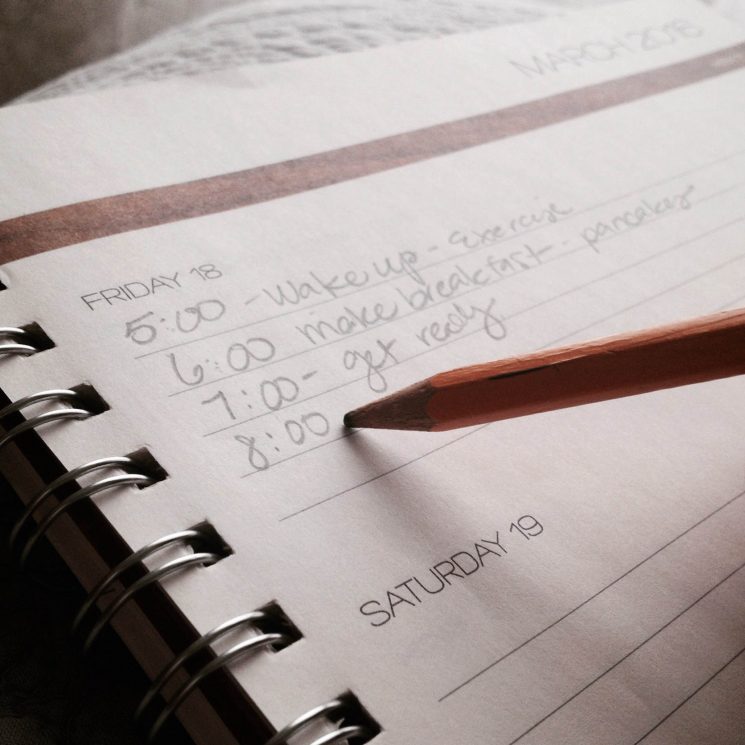 MARCH 2016
FRIDAY 18
5:00 - Wake up - Exercise
6:00 make breakfast - pancakes
7:00 - get ready
8:00
SATURDAY 19